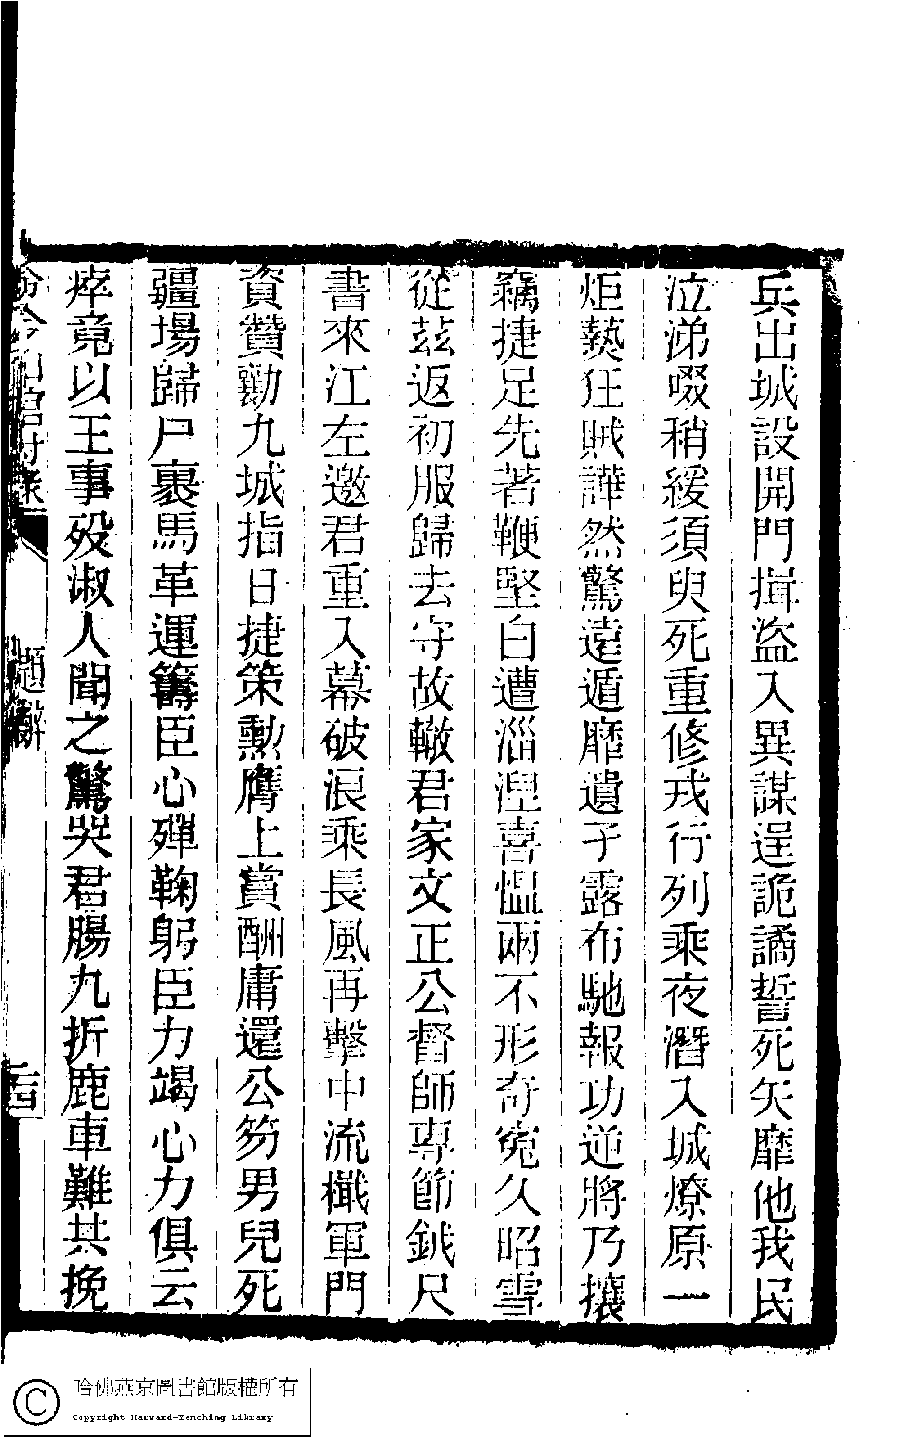 兵出城設開門揖盜入異謀逞詭譎誓死矢靡他我民
泣涕啜稍緩須臾死重修戎行列乘夜潛入城燎原一
炬熱狂賊譁然驚遠遁靡遺孑露布馳報功逆將乃攘
竊捷足先著鞭堅白遭淄涅喜慍兩不形奇冤久昭雪
從茲返初服歸去守故轍君家文正公督師專節鉞尺
書來江左邀君重入幕破浪乘長風再擊中流檝軍門
資贊勷九城指日捷策勳膺上賞酬庸還公笏男兒死
疆場歸尸裹馬革運籌臣心殫鞠躬臣力竭心力俱云
瘁竟以王事歿淑人聞之驚哭君腸九折鹿車難共挽
題辭
哈佛燕京圖書館版權所有
Copyright Harvard-Yenching Library